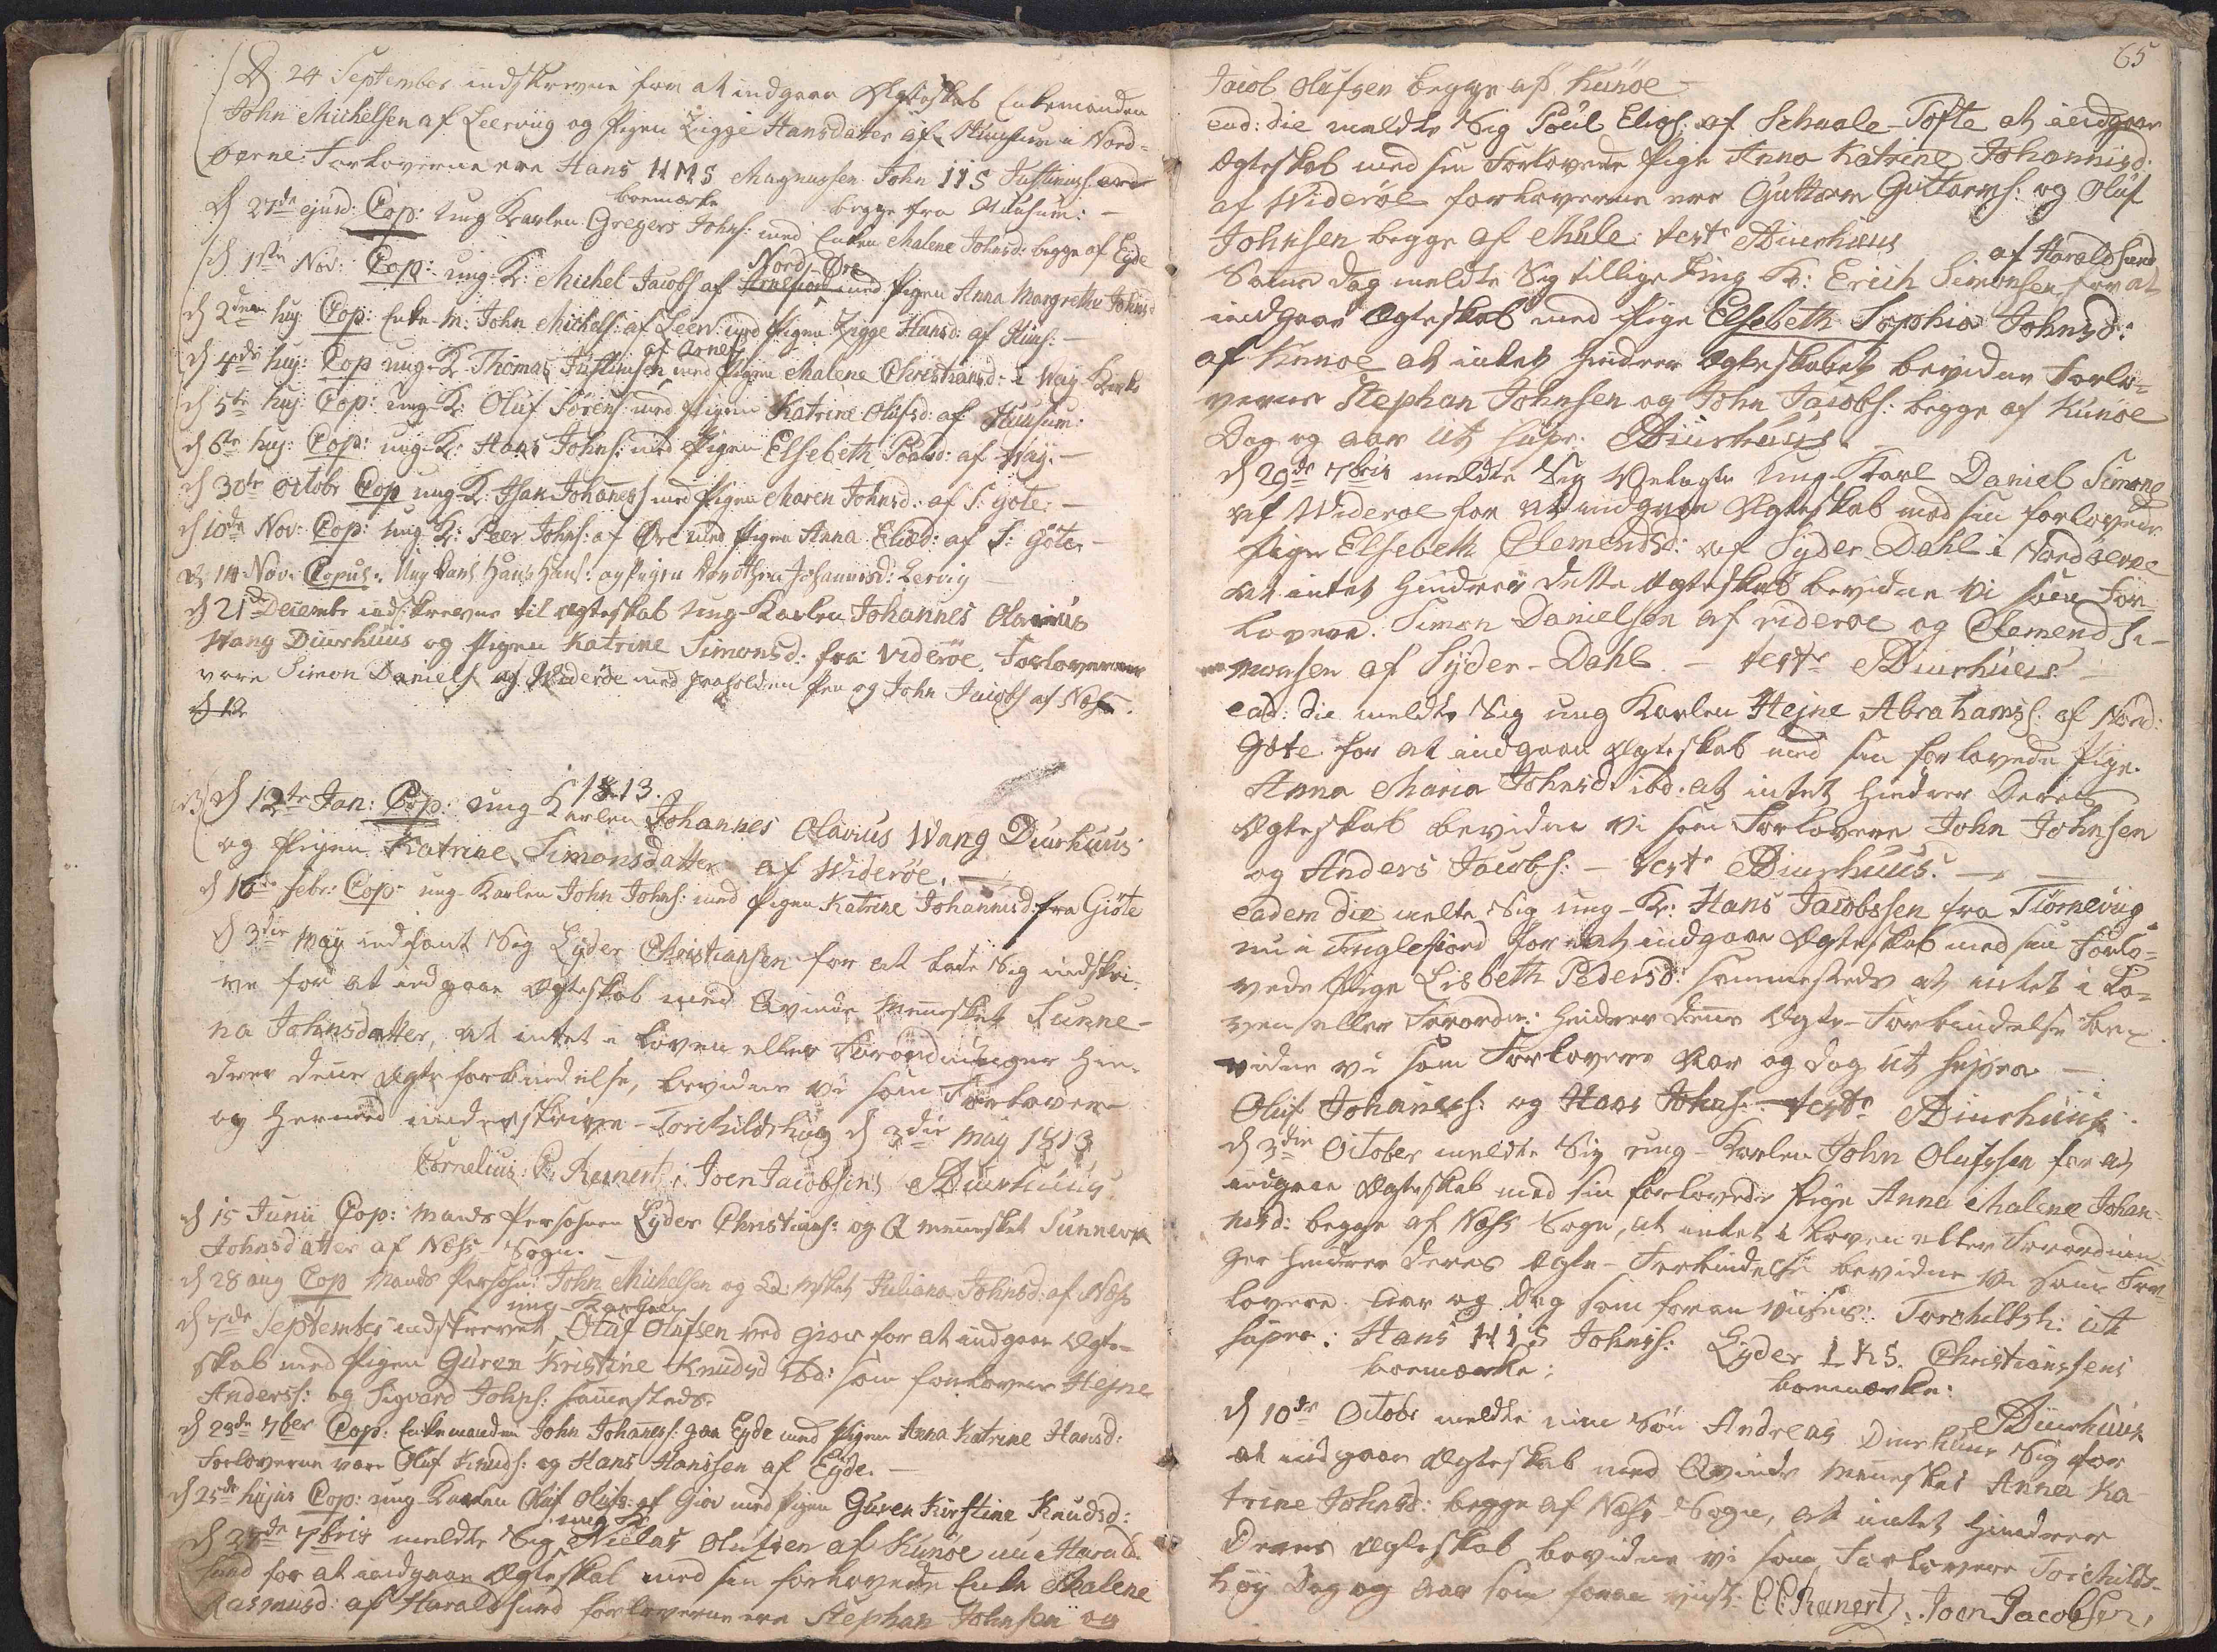 D 24 September indskrevne for at indgaae Ægteskab Enkemanden
John Michelsen af Leervüg og Pigen Ziggè Hansdatter af Huusum i Nord-
öerne. Forloverne ere Hans HMS Magnussen John IIS Justinuss: ord
boemærke begge fra Huusum: -
D 27de ejusd: Cop: Ung Karlen Gregers Johns: med Enken Malene Johnsd: begge af Eyde
D 1ste Nov: Cop: ung K: Michel Jacobs af Nord-Øre med Pigen Anna Margrethe Johnsd
D 2den huj: Cop: Enke-M: John Michels: af Leerv: med Pigen Zigge Hansd: af Huus: -
D 4de huj: Cop ung-K Thomas Justinsen af Arnef med Pigen Malene Christiansd: i Waij Kirke
D 5te huj: Cop: ung-K: Oluf Sörens: med Pigen Katrine Olufsd: af Huusum:
D 6te huj: Cop: ung-K: Hans Johns: med Pigen Elsebeth Poulsd: af Waij. -
D 30te Octobr Cop ung-K: Isak Johaness med Pigen Maren Johnsd: af S: gote. -
D 10de Nov: Cop: ung K: Peer Johns: af Øre med Pigen Anna Eliæd: af S: Göte. -
D 14 Nov. Copul: Ung Karl Hans Hans: og Pigen Dorothea Johannisd: Lervig
D 21de Decembr indskrevne til Ægteskab Ung-Karlen Johannes Olavius
Wang Diurhuus og Pigen Katrine Simonsd: fra Videröe. Forloverne
vare Simon Daniels af Wideröe med paaholden Pen og John Jacobs af Næss.
D 12
1813.
D 12te Jan: Cop: ung Karlen Johannes Olavius Wang Diurhuus
og Pigen Katrine Simonsdatter af Wideröe. -
D 16de Febr: Cop: ung Karlen John Johns: med Pigen Katrine Johannisd: fra Giöte
D 3die May indfant Sig Lyder Christiansen for at lade Sig indskri-
ve for at indgaae Ægteskab med Qvinde Mennesket Sunne-
na Johnsdatter, at intet i Loven eller Forordninger hin-
drer denne Ægteforbindelse, bevidne vi som Forlover
og hermed underskriver - Torchildshöy D 3die May 1813
Cornelius: P. Reinert, Joen Jacobsens ADiurhuus
D 15 Junii Cop: Mands Personen Lyder Christians: og Q mennesket Sunneva
Johnsdatter af Næss Sogn. -
D 28 aug Cop Mands Person: John Michelsen og Qd: msket Juliana Johnsd: af Næss
D 7de September indskrevet ung Karlen Oluf Olufsen ved Giow for at indgaae Ægte-
skab med Pigen Guren Kristine Knudsd ibd: som forlovere Hejne
Anderss: og Sigvard Johns: sammesteds.
D 23de 7ber Cop: Enkemanden John Johaness: paa Eyde med Pigen Anna Katrine Hansd:
Forloverne vare Oluf Knuds: og Hans Hanssen af Eyde. -
D 25de hujus Cop: ung-Karlen Oluf Olufs: af Giov med Pigen Guren Kirstine Knudsd:
D 27de 7bris meldte Sig ung K: Niclas Olufsen af Kunöe nu i Harald-
sund for at indgaae Ægteskab med sin forlovede Enke Malene
Rasmusd: af Haraldsund forloverne ere Stephan Johnsen og
65
Jacob Olufsen begge af Kunöe -
ead: die meldte Sig Poul Elias: af Schaale-Tofte at indgaae
Ægteskab med sin Forlovede Pige Anna Katrine Johannisd:
af Wideröe forloverne ere Guttorm Guttorms: og Oluf
Johnsen begge af Mule: test: ADiurhuus
Samme Dag meldte Sig tillige Ung K: Erich Simonsen af Haraldsund for at
indgaae Ægteskab med Pige Elsebeth Sophia Johnsd:
af Kunoe at intet hindrer Ægteskabet bevidne Forlo-
verne Stephan Johnsen og John Jacobs: begge af Kunöe
Dag og aar ut supr: ADiurhuus. -
D 29de 7bris meldte Sig Velagte Ung-Karl Daniel Simons
af Wideroe for at indgaae Ægteskab med sin forlovede
Pige Elsebeth Clemendsd: af Syder Dahl i Nordöerne
at intet hindrer dette Ægteskab bevidne vi som For-
lovere. Simon Danielsen af videroe og Clemend Si-
monsen af Syder-Dahl. - teste ADiurhuus.
ead: die meldte Sig ung Karlen Hejne Abrahams: af Nord:
Göte for at indgaae Ægteskab med sin forlovede Pige
Anna Maria Johnsd: ibd: at intet hindrer Deres
Ægteskab bevidne vi som Forlovere John Johnsen
og Anders Jacobs: - test: ADiurhuus. -
eadem die melte Sig ung-K: Hans Jacobssen fra Tiörnevüg
nu i Fuglefiord for at indgaae Ægteskab med sin Forlo-
vede Pige Lisbeth Pedersd: sammesteds at intet i Lo-
ven eller Forordn: hindrer denne Ægte-Forbindelse be-
vidne vi som Forlovere Aar og dag ut supra -
Oluf Johaness: og Hans Johns: - teste ADiurhuus.
D 3die October meldte Sig ung-Karlen John Olufssen for at
indgaae Ægteskab med sin forlovede Pige Anna Malene Johan-
nisd: begge af Næss Sogn, at intet i Loven eller Forordnin-
ger hindrer deres Ægte-Forbindelse bevidne vi som For-
lovere. Aar og Dag som foran vüses: Torchilsh: ut
supra: Hans HIS Johnss: Lyder LKS. Christianssens
boemærke: boemærke:
ADiurhuus
D 10de Octobr meldte min Sön Andreas Diurhuus Sig for
at indgaae Ægteskab med Qvinde Mennesket Anna Ka-
trine Johnsd: begge af Næss-Sogn, at intet hindrer
Deres Ægteskab bevidne vi som Forlovere Torchilds-
höy Dag og Aar som foran vüst: C.P.Reinert, Joen Jacobsen,